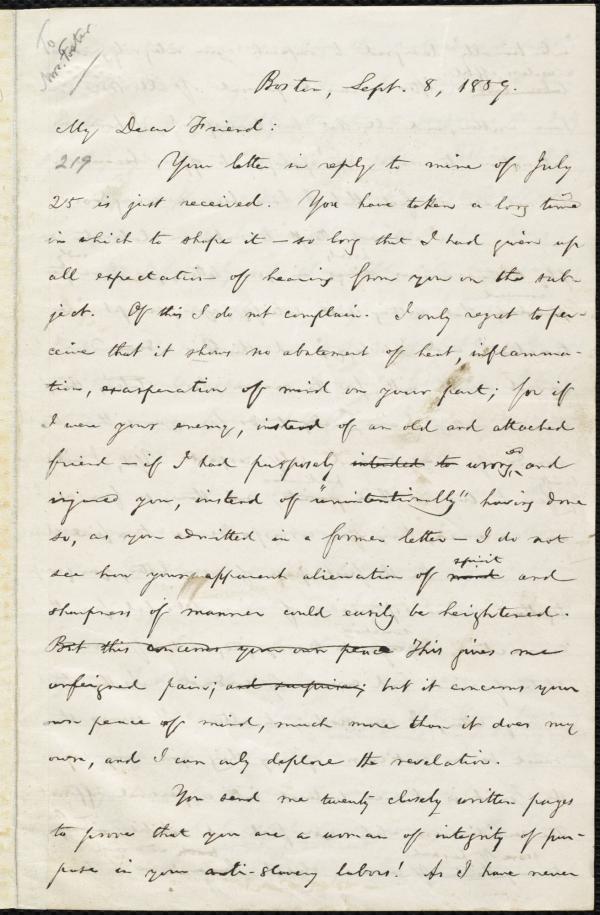 To
Mrs. Foster
Boston, Sept. 8, 1859.
My Dear Friend:
219 Your letter in reply to mine of July
25 is just received. You have taken a long time
in which to shape it — so long that I had given up
all expectation of hearing from you on the sub-
ject. Of this I do not complain. I only regret to per-
ceive that it shows no abatement of heat, inflamma-
tion, exasperation of mind on your part; for if
I were your enemy, instead of an old and attached
friend — if I had purposely intended to wronged and
injured you, instead of "unintentionally" having done
so, as you admitted in a former letter — I do not
see how your apparent alienation of mind spirit and
sharpness of manner could easily be heightened.
But this concerns your own peace This gives me
unfeigned pain; and surprise; but it concerns your
own peace of mind, much more than it does my
own, and I can only deplore the revelation.
You send me twenty closely written pages
to prove that you are a woman of integrity of pur-
pose in your anti-slavery labors! As I have never